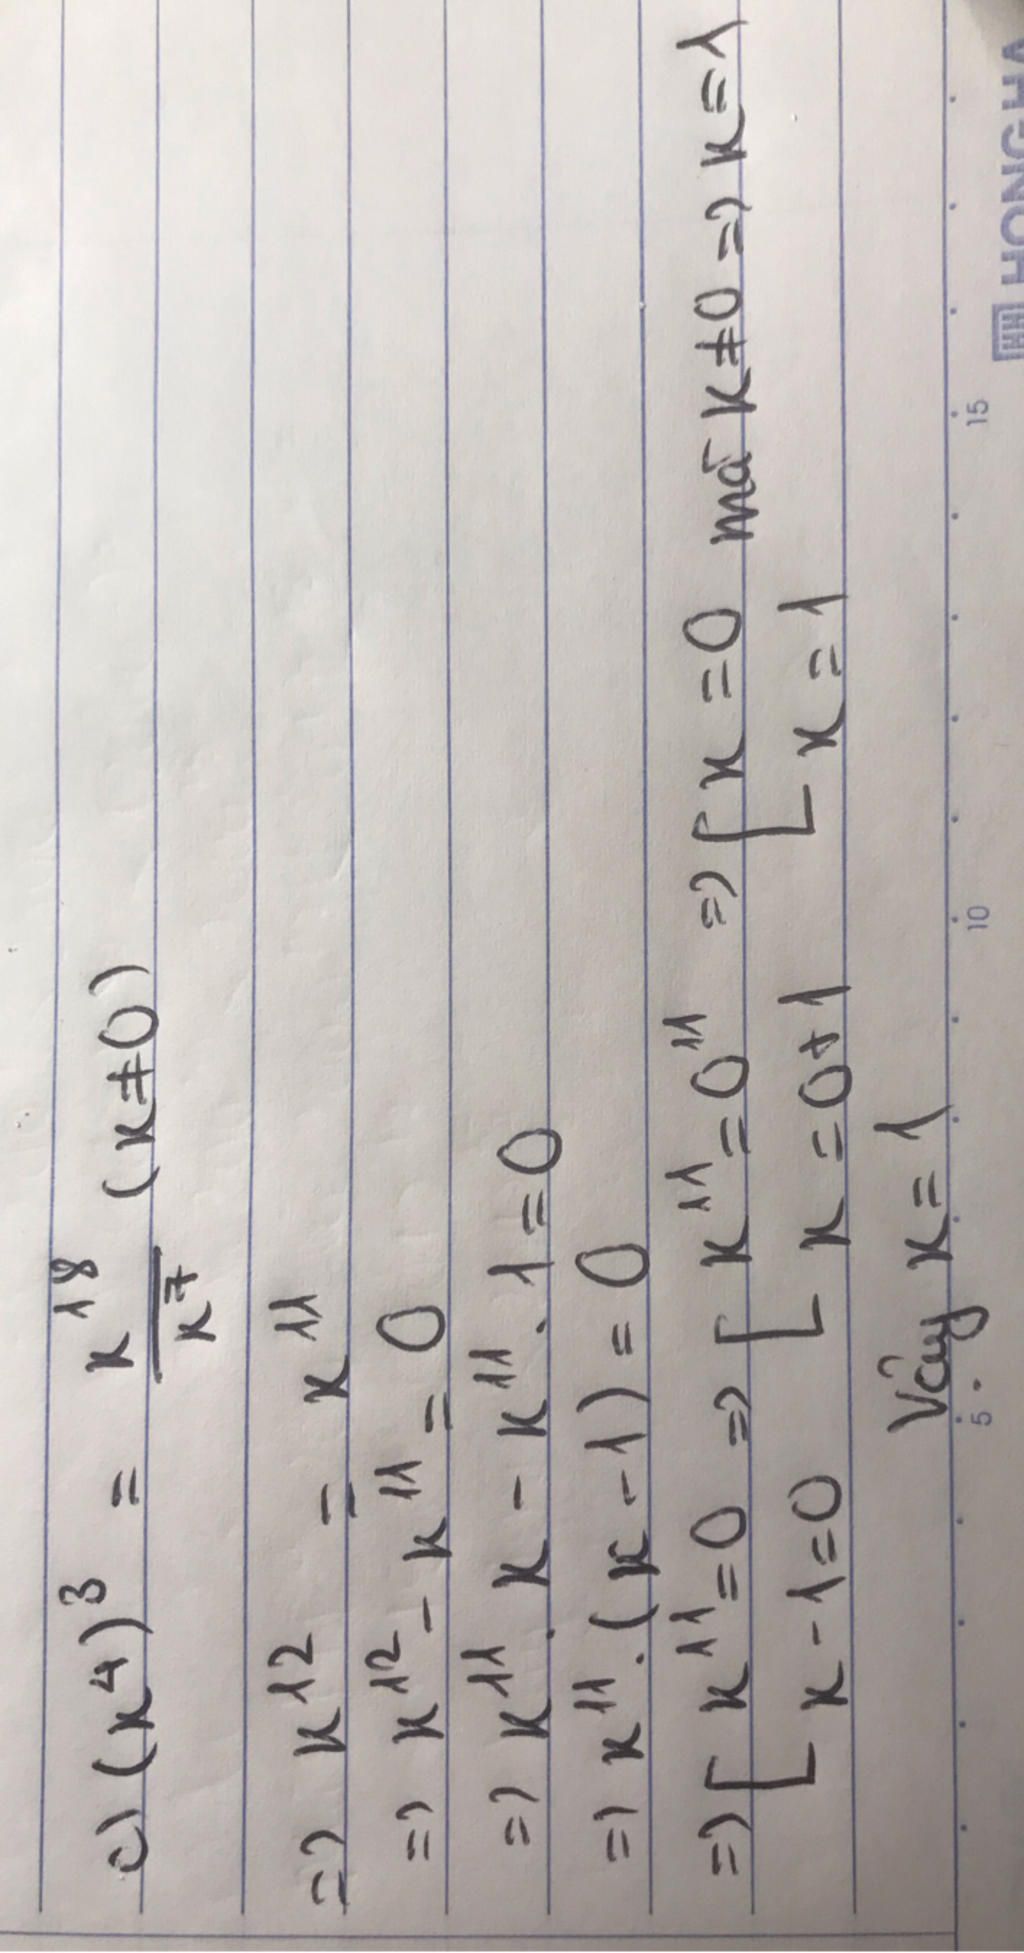 c) (x⁴)³ = x¹⁸/x⁷ (x≠0)
=> x¹² = x¹¹
=> x¹² - x¹¹ = 0
=> x¹¹ . x - x¹¹ . 1 = 0
=> x¹¹ . (x - 1) = 0
=> [ x¹¹ = 0 => [ x¹¹ = 0¹¹ => [ x = 0 mà x≠0 => x = 1
x - 1 = 0 x = 0+1 x = 1
Vậy x = 1
5 10 15
HH HONG HA